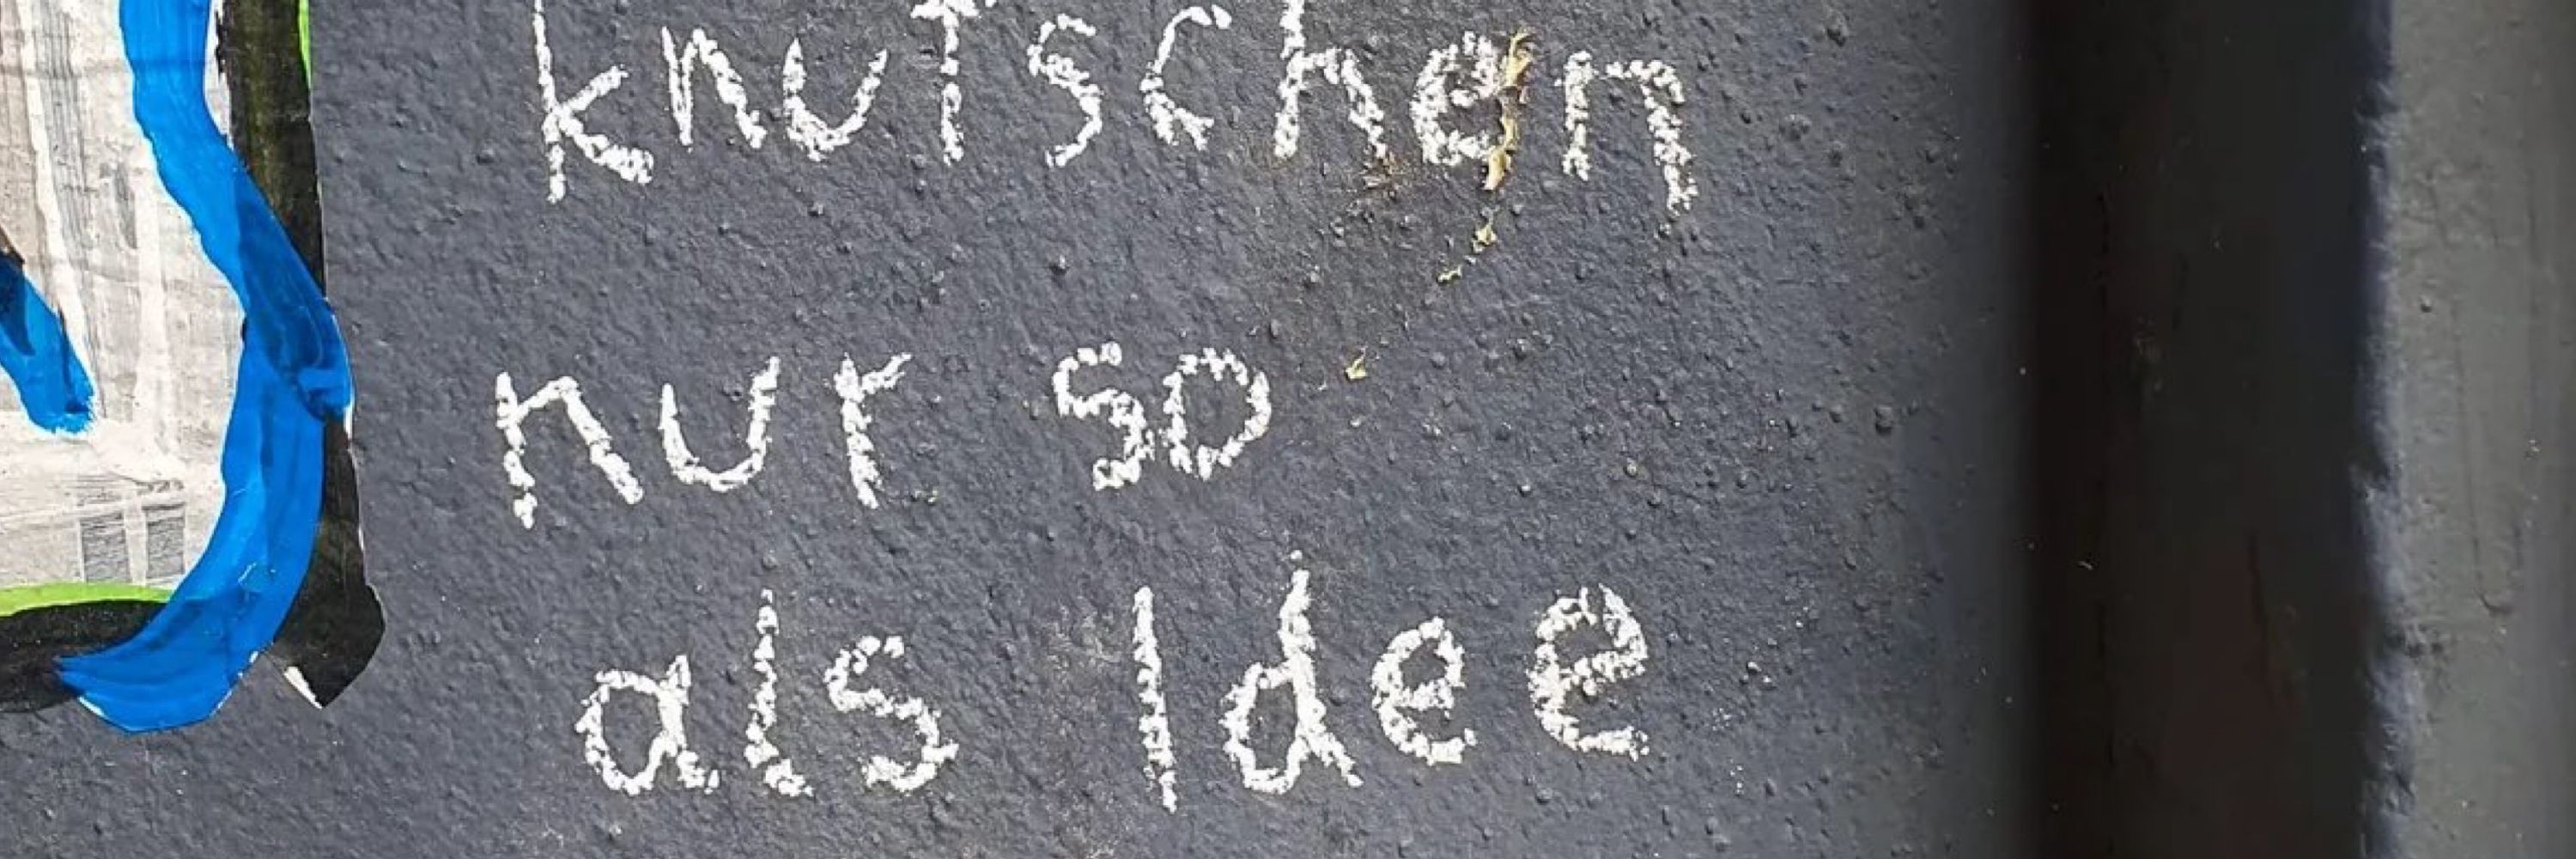 knutschen
nur so
als Idee